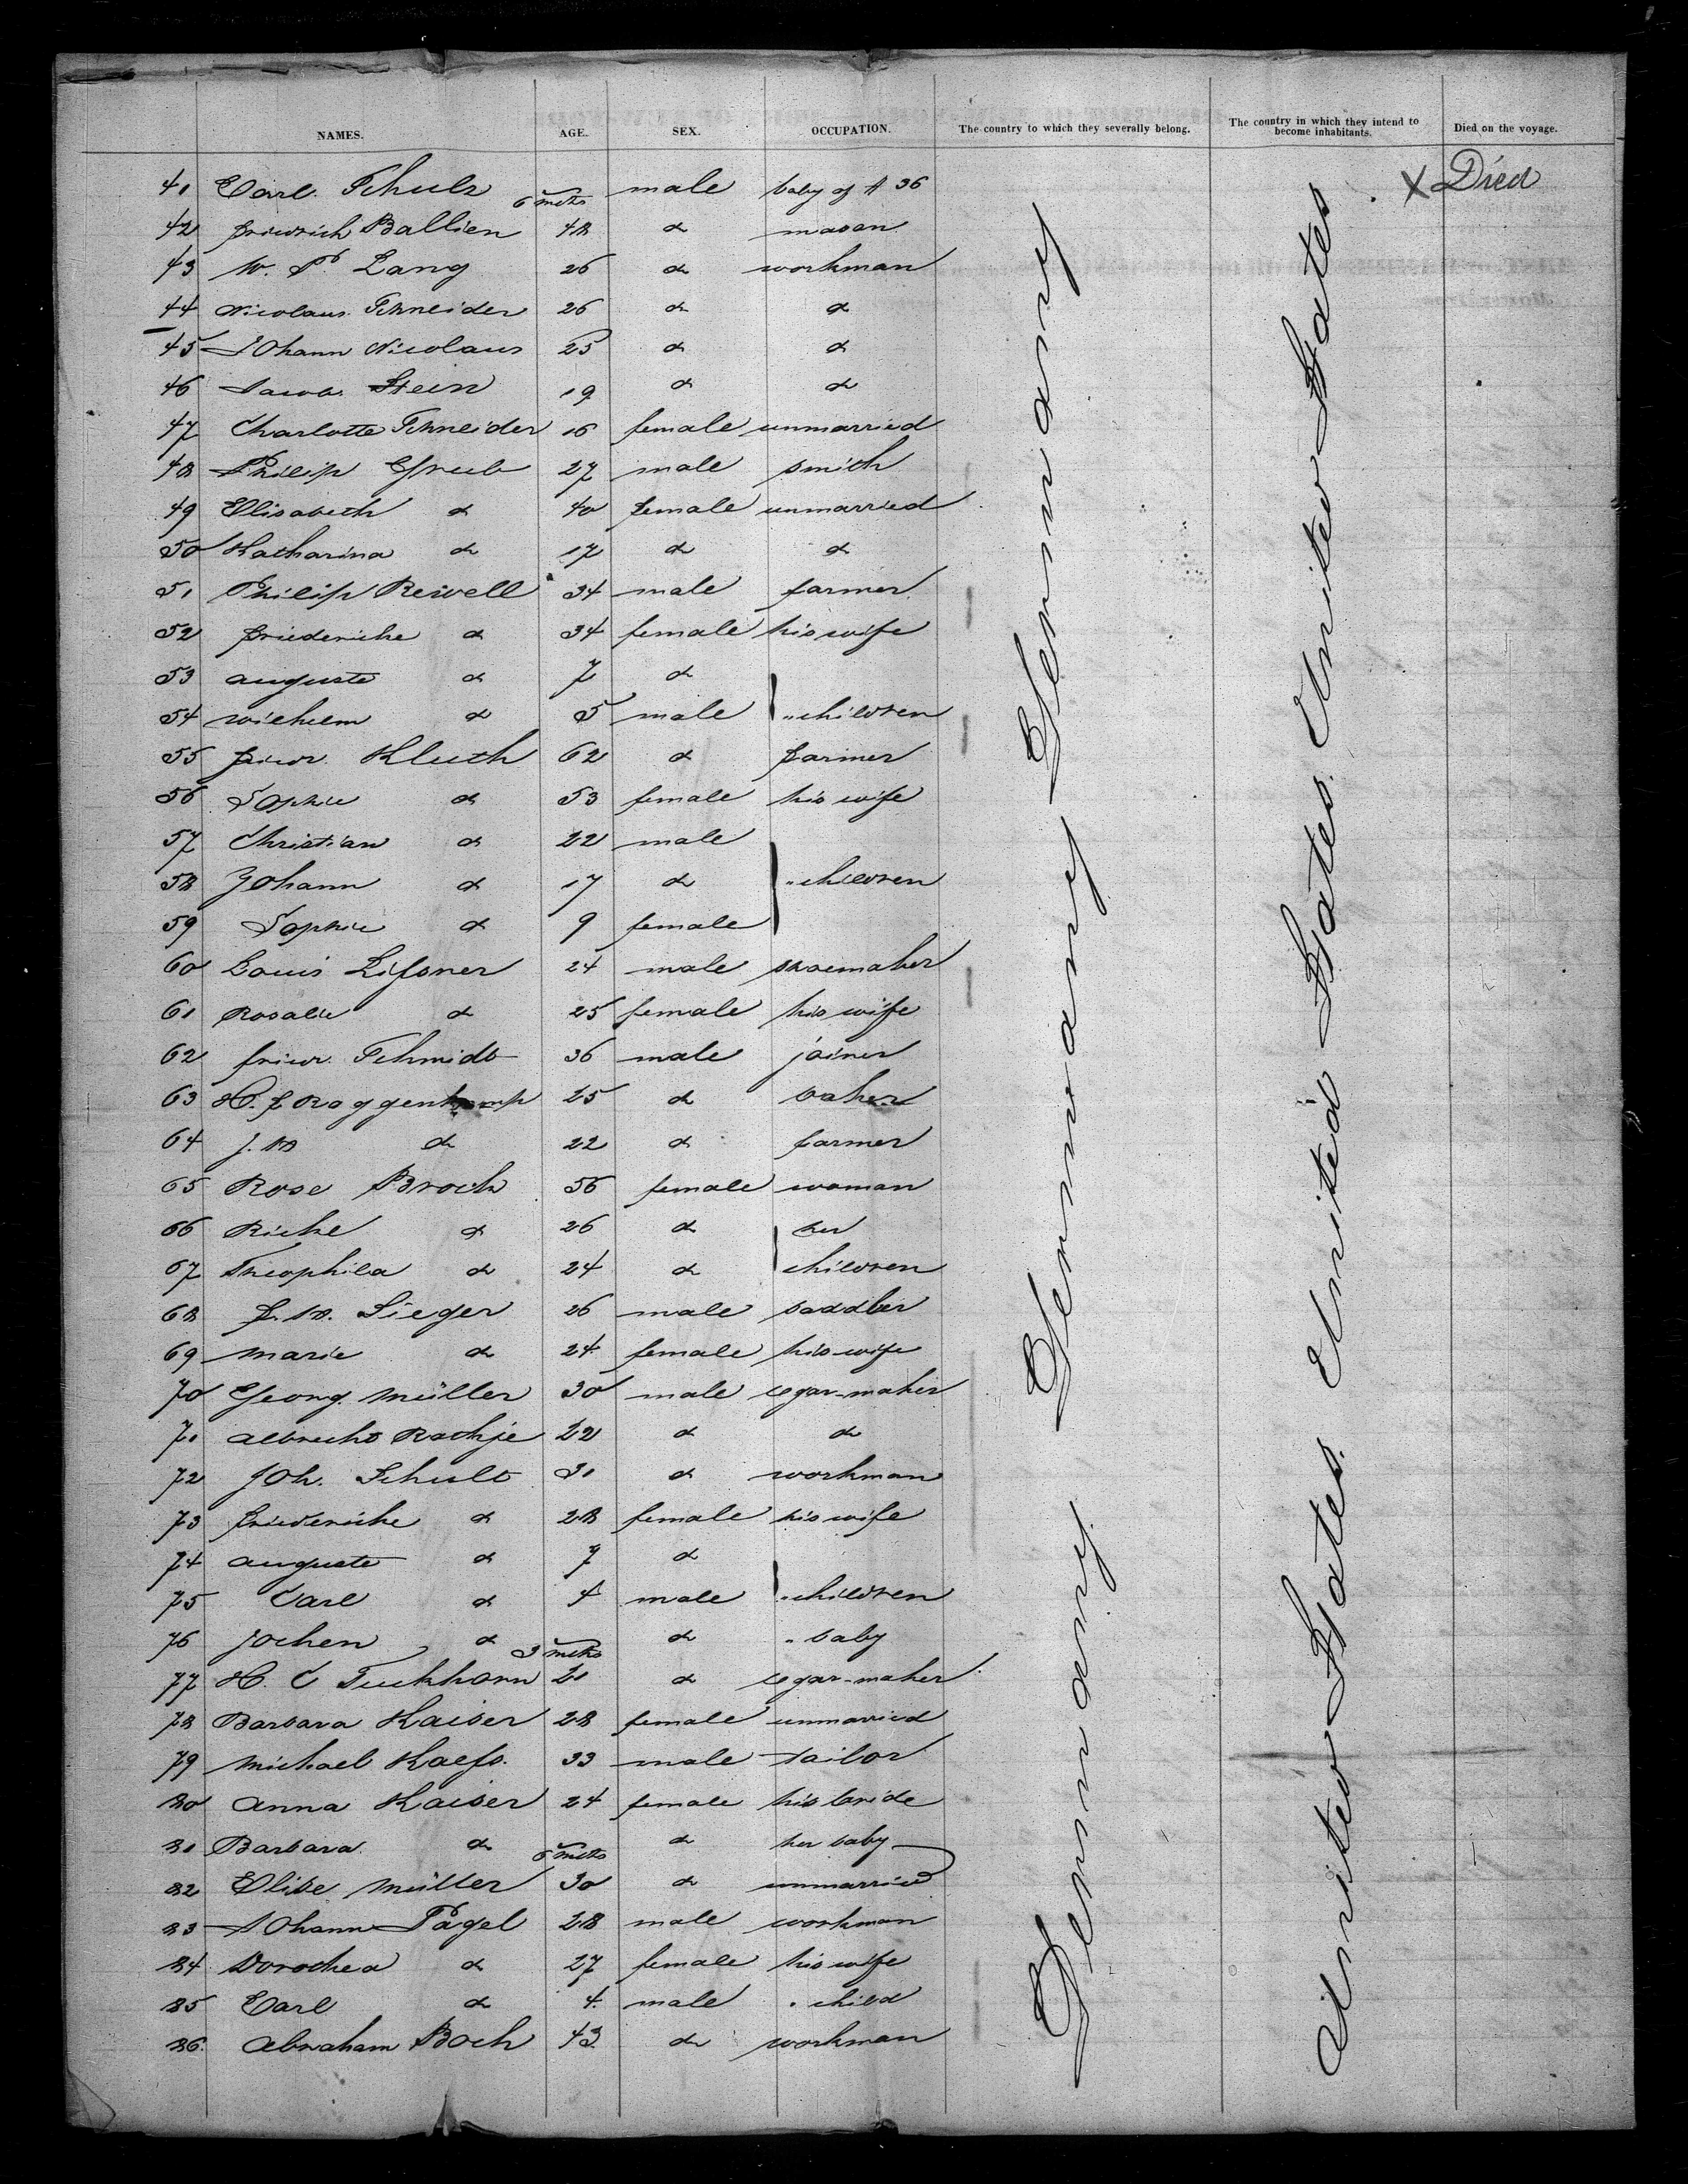 NAMES. AGE. SEX. OCCUPATION. The country to which they severally belong. The country in which they intend to become inhabitants. Died on the voyage.
41 Carl Schulz 6 mths male baby of # 36 X Died
42 Friedrich Ballien 48 d mason
43 W. P. Lang 26 d workman
44 Nicolaus Schneider 26 d d
45 Johann Nicolaus 25 d d
46 Jacob Stein 19 d d
47 Charlotte Schneider 16 female unmarried
48 Philip Grub 27 male smith
49 Elisabeth d 40 female unmarried
50 Katharina d 17 d d
51 Philip Rewell 34 male farmer
52 Friederike d 34 female his wife
53 auguste d 7 d
54 wilhelm d 5 male " children
55 Friedr. Kluth 62 d farmer
56 Sophie d 53 female his wife
57 Christian d 22 male
58 Johann d 17 d " children
59 Sophie d 9 female
60 Louis Lissner 24 male shoemaker
61 Rosalie d 25 female his wife
62 Friedr. Schmidt 36 male joiner
63 H. F. Roggenkamp 25 d baker
64 J. H d 22 d farmer
65 Rose Brock 56 female woman
66 Rieke d 26 d her
67 Theophila d 24 d children
68 Sieger 26 male saddler
69 Marie d 24 female his wife
70 Georg Müller 30 male segar-maker
71 albrecht Rathje 22 d d
72 Joh. Schult 31 d workman
73 Friederike d 28 female his wife
74 auguste d 7 d
75 Carl d 4 male " children
76 Jochen d 3 mths d " baby
77 H. C 21 d segar-maker
78 Barbara Kaiser 28 female unmarried
79 Michael Kaess. 33 male tailor
80 Anna Kaiser 24 female his bride
81 Barbara d 6 mths d her baby
82 Elise Müller 30 d unmarried
83 Johann Pagel 28 male workman
84 Dorothea d 27 female his wife
85 Carl d 4 male " child
86. Abraham Boch 43 d workman
Germany Germany Germany Germany
United States United States United States.